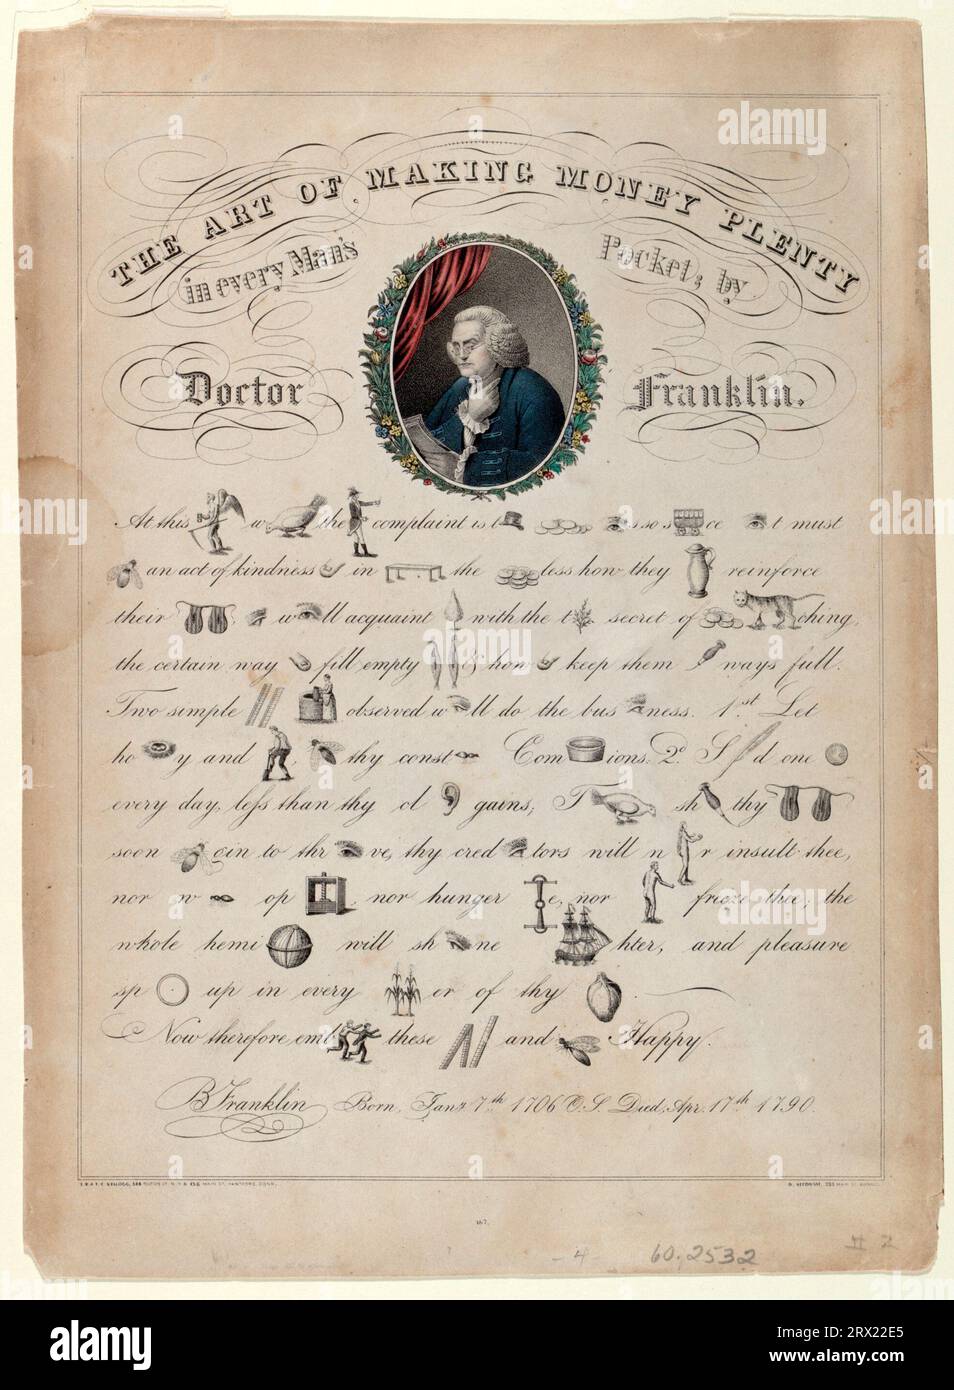 THE ART OF MAKING MONEY PLENTY
in every Man's Pocket; by
Doctor Franklin.
At this w the complaint is t s so s ce t must
an act of kindness in the less how they reinforce
their w ll acquaint with the t secret of ching,
the certain way fill empty & how keep them ways full.
Two simple observed w ll do the bus ness. 1st Let
ho y and thy const Com ions. 2d S d one
every day, less than thy cl gains; T sh thy
soon gin to thr ve, thy cred tors will n r insult thee,
nor w op nor hunger e, nor frieze thee; the
whole hemi will sh ne hter, and pleasure
sp up in every er of thy
Now therefore emb these and Happy.
B Franklin Born, Jany 7th 1706 O.S. Died, Apr. 17th 1790.
167.
- 4 - 60.2532 II 2
alamy
a
alamy
Image ID: 2RX22E5
www.alamy.com